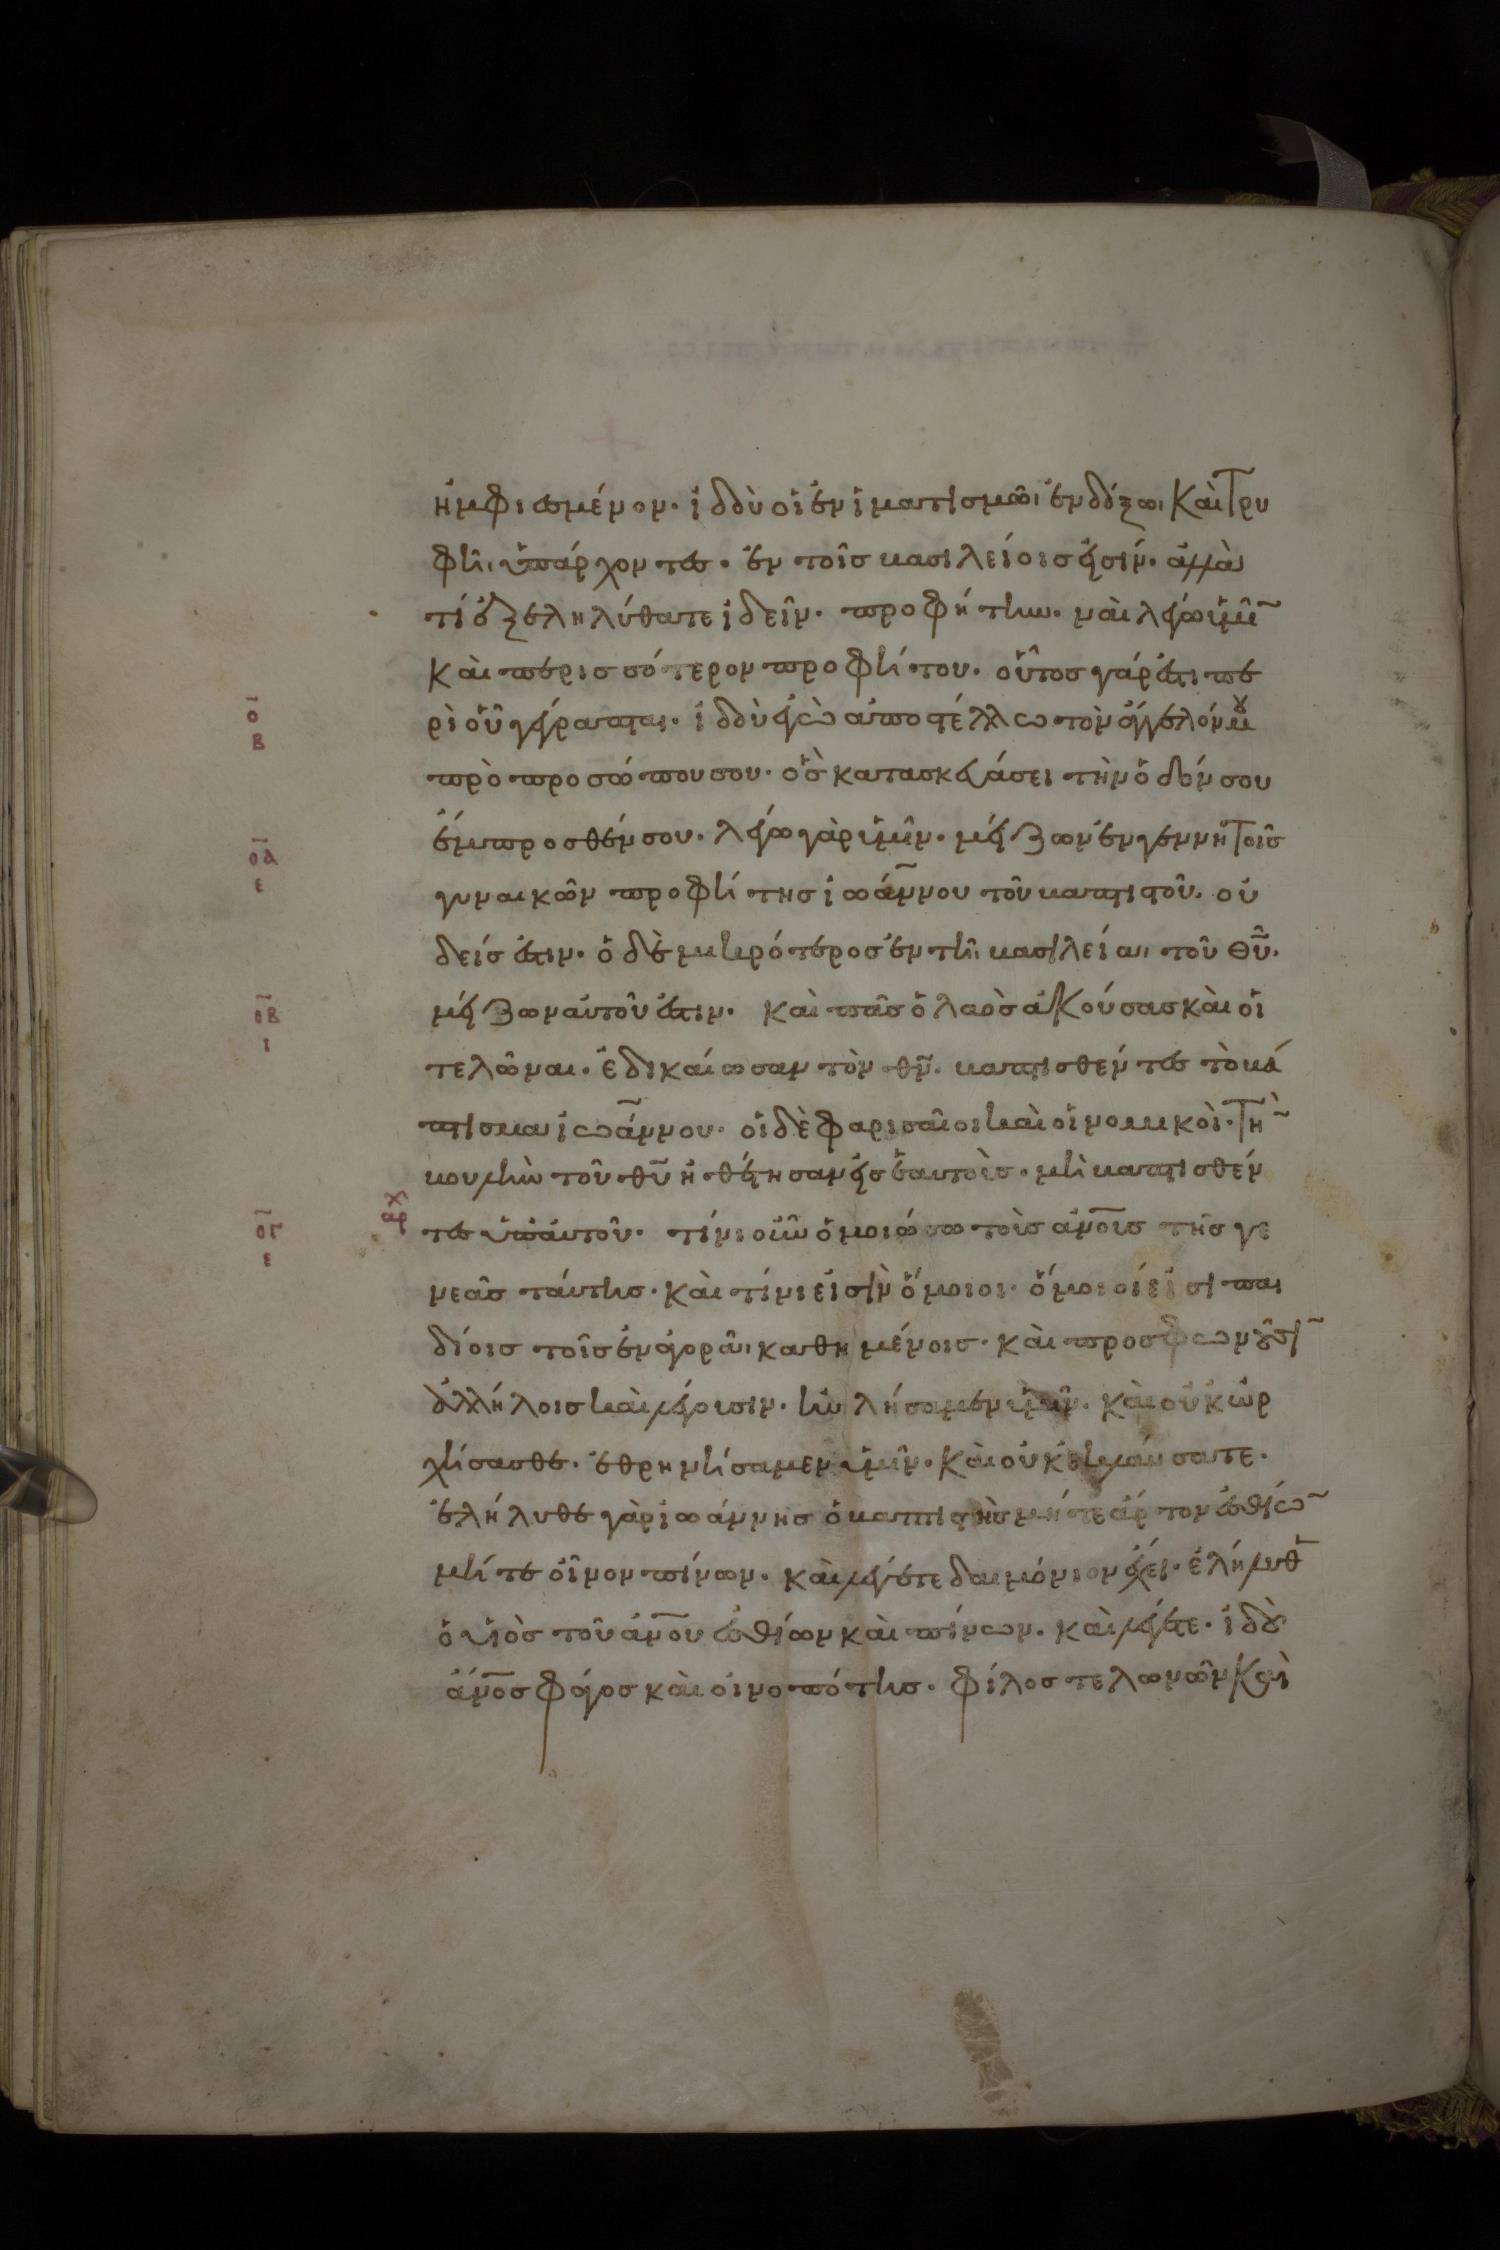 ἠμφιεσμένον. ἰδοὺ οἱ ἐν ἱματισμῶι ἐνδόξωι καὶ τρυ
φῆι ὑπάρχοντες. ἐν τοῖς βασιλείοις εἰσίν. ἀλλὰ
τί ἐξεληλύθατε ἰδεῖν. προφήτην. ναὶ λέγω ὑμῖ̅
καὶ περισσότερον προφήτου. οὗτός γάρ ἐστι πε
ρὶ οὗ γέγραπται. ἰδοὺ ἐγὼ ἀποστέλλω τὸν ἄγγελόν μου
πρὸ προσώπου σου. ὃς κατασκευάσει τὴν ὁδόν σου
ἔμπροσθέν σου. λέγω γὰρ ὑμῖν. μείζων ἐν γεννητοῖς
γυναικῶν προφήτης ἰωάννου τοῦ βαπτιστοῦ. οὐ
δείς ἐστιν. ὁ δὲ μικρότερος ἐν τῆι βασιλείαι τοῦ θ̅υ̅.
μείζων αὐτοῦ ἐστιν. καὶ πᾶς ὁ λαὸς ἀκούσας καὶ οἱ
τελῶναι. ἐδικαίωσαν τὸν θ̅ν̅. βαπτισθέντες τὸ βά
πτισμα ἰωάννου. οἱ δὲ φαρισαῖοι καὶ οἱ νομικοὶ. τὴ̅
βουλὴν τοῦ θ̅υ̅ ἠθέτησαν εἰς ἑαυτοὺς. μὴ βαπτισθέν
τες ὑπ' αὐτοῦ. τίνι οὖν ὁμοιώσω τοὺς ἀ̅ν̅ο̅υ̅ς τῆς γε
νεᾶς ταύτης. καὶ τίνι εἰσὶν ὅμοιοι. ὅμοιοί εἰσι παι
δίοις τοῖς ἐν ἀγορᾶι καθημένοις. καὶ προσφωνοῦσι̅
ἀλλήλοις καὶ λέγουσιν. ηὐλήσαμεν ὑμῖν. καὶ οὐκ ὠρ
χήσασθε. ἐθρηνήσαμεν ὑμῖν. καὶ οὐκ ἐκλαύσατε.
ἐλήλυθε γὰρ ἰωάννης ὁ βαπτιστὴς μήτε ἄρτον ἐσθίω̅
μήτε οἶνον πίνων. καὶ λέγετε δαιμόνιον ἔχει. ἐλήλυθ
ὁ υἱὸς τοῦ ἀ̅ν̅ο̅υ̅ ἐσθίων καὶ πίνων. καὶ λέγετε. ἰδοὺ
ἀ̅ν̅ο̅ς φάγος καὶ οἰνοπότης. φίλος τελωνῶν καὶ
ο̅
β
ο̅α̅
ε
ο̅β̅
ι
αρχ
ο̅γ̅
ε